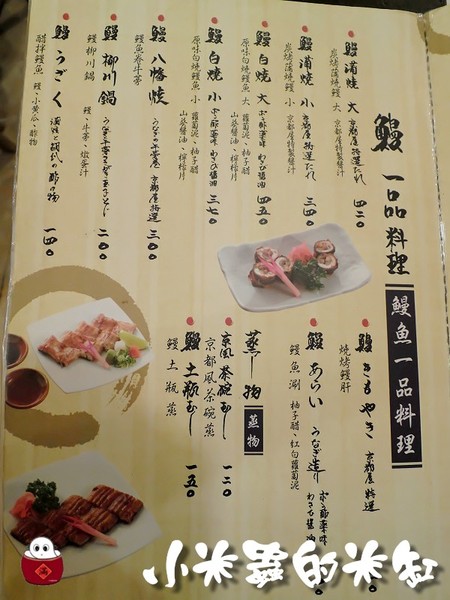 鰻 一品料理
鰻魚一品料理
鰻 蒲燒 大 京都屋特選だれ 四二〇
炭烤蒲燒鰻 大 京都屋特製醬汁
鰻 蒲燒 小 京都屋特選だれ 三四〇
炭烤蒲燒鰻 小 京都屋特製醬汁
鰻 白燒 大
わさび醬油 四五〇
原味白燒鰻魚 大 蘿蔔泥、柚子醋
山葵醬油、檸檬片
鰻 白燒 小
わさび醬油 三七〇
原味白燒鰻魚 小 蘿蔔泥、柚子醋
山葵醬油、檸檬片
鰻 八幡燒 うなぎの牛蒡 京都屋特選 三〇〇
鰻魚卷牛蒡
鰻 柳川鍋 二〇〇
鰻柳川鍋 鰻、牛蒡、燉蛋汁
鰻 うざく 一四〇
醋拌鰻魚 鰻、小黃瓜、酢物
鰻 きもやき 京都屋特選
燒烤鰻肝
鰻 あらい うなぎ造り
わさび醬油
鰻魚涮 柚子醋、紅白蘿蔔泥
蒸し物
蒸物
京風茶碗蒸し 一二〇
京都風茶碗蒸
鰻 土瓶蒸し 一五〇
鰻土瓶蒸
小米蟲的米缸